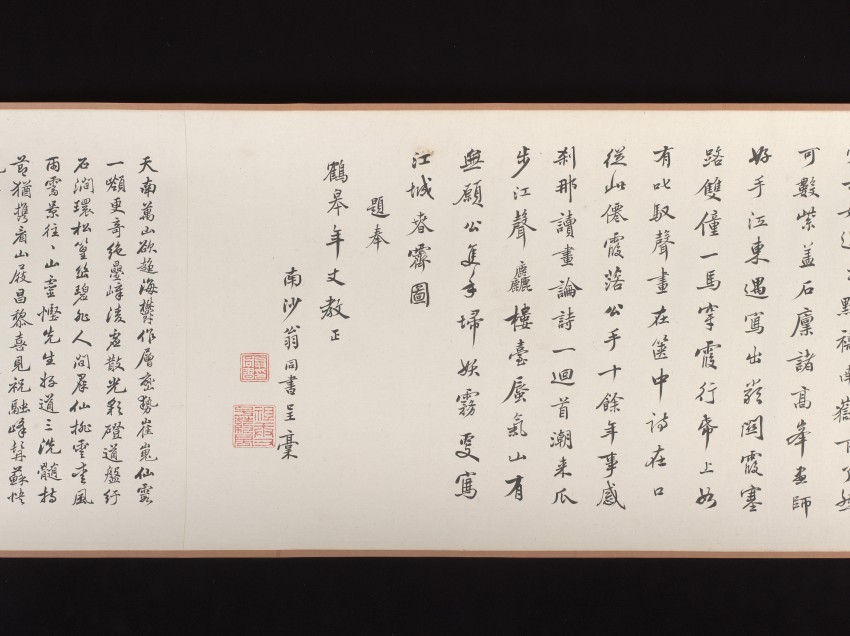 可數紫蓋石廩諸髙峯畫師
好手江東遇寫出嚴關霞塞
路雙僮一馬穿霞行帋上如
有叱馭聲畫在篋中詩在口
從此僊霞落公手十餘年事感
刹那讀畫論詩一迴首潮来瓜
步江聲麤樓臺蜃氣山有
無願公隻手埽妖霧更寫
江城春霽圖
題奉
鶴皋年丈教正
南沙翁同書呈稾
天南萬山欲趍海鬱作層臺勢崔嵬仙霞
一嶺更奇絶疊嶂淩虚散光彩磴道盤紆
石澗環松篁幽碧非人間羣仙挑雲走風
雨靈景往〻山靈慳先生好道三洗髓持
莭猶攜看山屐昌黎喜見祝融峰髯蘇快